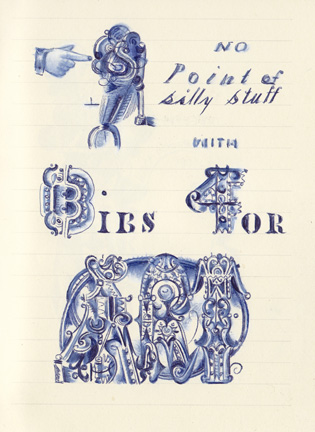 NO
Point of
silly stuff
WITH
BIBS FOR